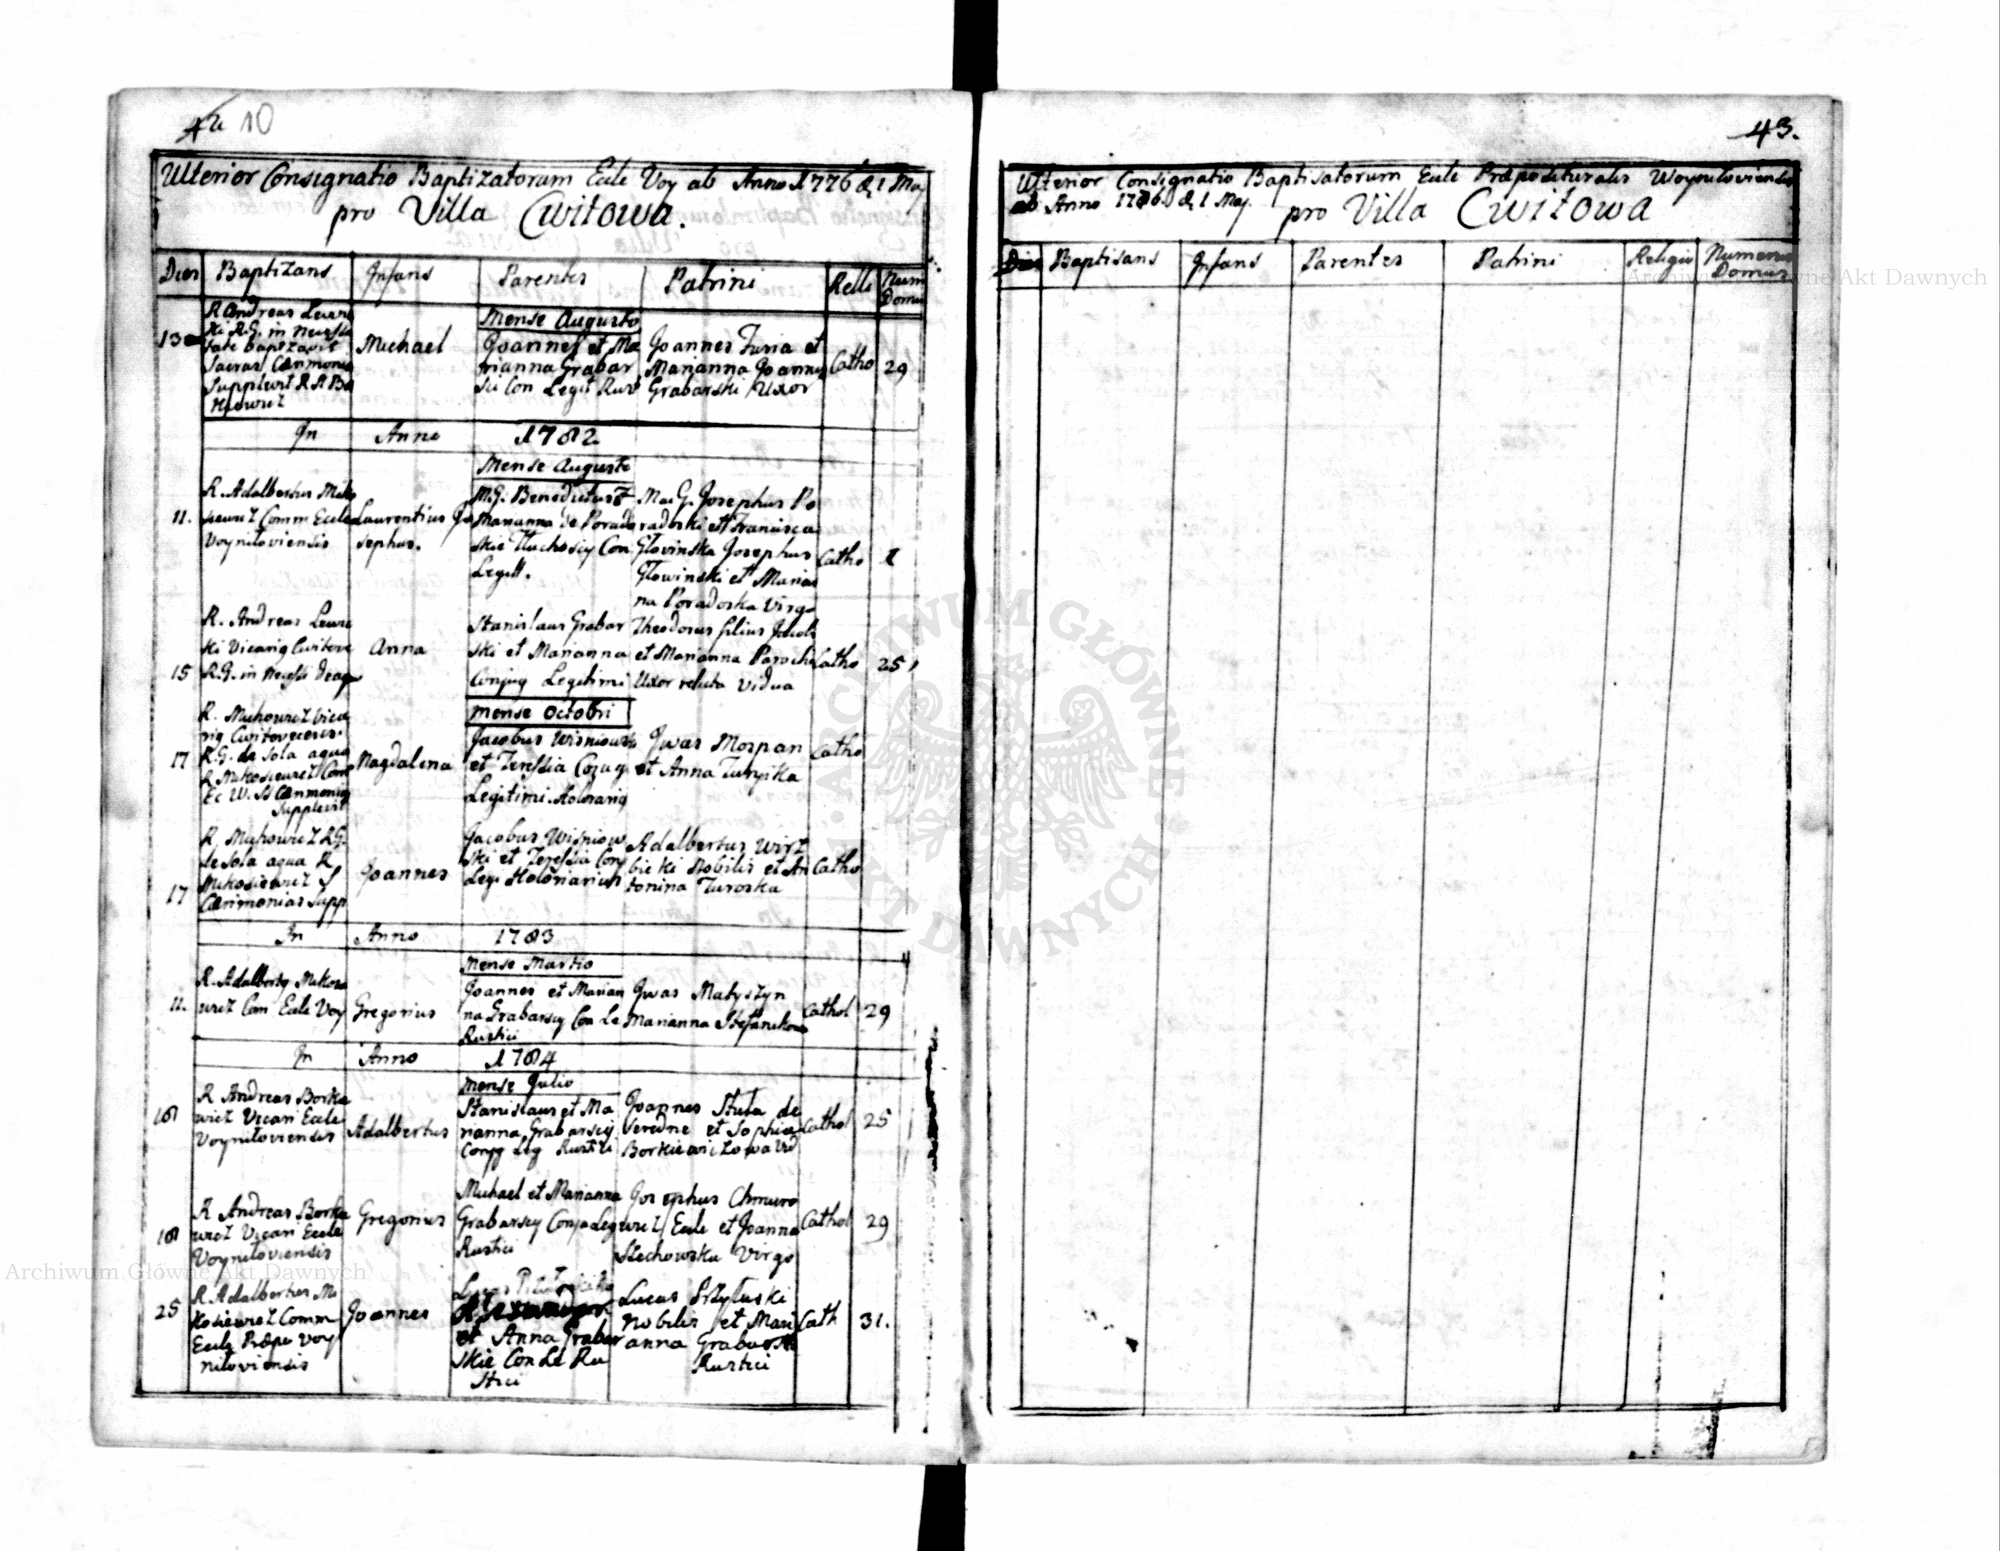 42 10
Ulterior Consignatio Baptizatorum Eccle Voy ab Anno 1776 d 1 May
pro Villa Cwitowa.
Dies Baptizans Infans Parentes Patrini Relli Num Domus
R Andreas Lewic
ki R.G. in necessi
tate baptizavit
Sacras Cæremonia
Supplevit R A
13 Michael
Mense Augusto
Joannes et Ma
rianna Grabar
sci Con Legit Rus
Joannes Turia et
Marianna Joannis
Grabarski Uxor
Catho 29
In Anno 1782
Mense Auguste
11. R. Adalbertus Miko
siewicz Comm Eccle
Voyniloviensis
Laurentius Jo
sephus.
M.G. Benedictus et
Marianna de Porado
skie Tluchoscy Con
Legitt.
Ma. G. Josephus Po
radoski et Francisca
Głovinska Josephus
Głowinski et Marian
na Poradoska Virgo
Catho 1
R. Andreas Lewic
ki Vicariq Cwitove
15 R.G. in Necessi de aqu
Anna
Stanislaus Grabar
ski et Marianna
Conjug Legitimi
Theodorus filius Jacobi
et Marianna Parochi
Uxor relicta Vidua
Catho 25
mense Octobri
R. Michowicz Vica
riq Cwitovecens.
17 R.G. de sola aqua
R Mikosiewicz Com
Ec W. SS Cæremonias
Supplevit
Magdalena
Jacobus Wisniowski
et Teressia Conjug
Legitimi. Holonariq
Jwas Mospan
et Anna Turyika
Catho
R. Michowicz R.G.
de sola aqua R
Mikosiewicz S
17 Cærimonias Supp
Joannes
Jacobus Wisniow
ski et Teressia Conj
Leg. Holoniarius
Adalbertus Wirz
bicki Nobilis et An
tonina Turoska
Catho
In Anno 1783
Mense Martio
11. R. Adalbertq Mikosie
wicz Com Eccle Voy
Gregorius
Joannes et Marian
na Grabarscy Con Le
Rustici
Jwas Matyszyn
Marianna Stefanikowa
Cathol 29
In Anno 1784
Mense Julio
18 R Andreas Borke
wicz Vicari Eccle
Voyniloviensis
Adalbertus
Stanislaus et Ma
rianna Grabarscij
Conjg Leg Rustici
Joannes Stuba de
Seredne et Sophia
Borkiewiczowa Vid
Cathol 25
18 R Andreas Borke
wicz Vicari Eccle
Voyniloviensis
Gregorius
Michael et Marianna
Grabarscy Conju Leg
Rustici
Josephus Chmuro
wicz Eccle et Joanna
Stechowska Virgo
Cathol 29
25 R Adalbertus Mi
kosiewicz Comm
Eccle Præpo Voy
niloviensis
Joannes
Lucas
et Anna Grabar
skie Con Le Ru
stici
Lucas Przyluski
Nobilis et Mari
anna Grabarski
Rustici
Cath 31.
43.
Ulterior Consignatio Baptisatorum Eccle Præposituralis Woyniloviensis
ab Anno 1776 d 1 May. pro Villa Cwitowa
Dies Baptisans Infans Parentes Patrini Religio Numerus Domus
Archiwum Główne Akt Dawnych
Archiwum Główne Akt Dawnych
ARCHIWUM GŁÓWNE AKT DAWNYCH